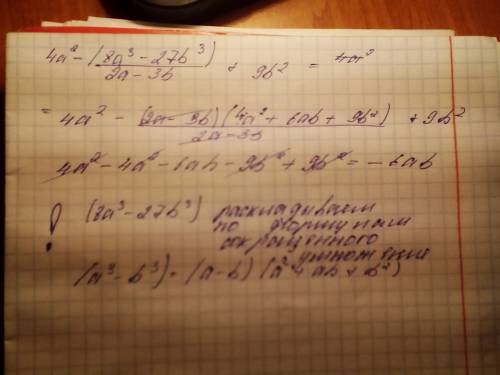 4a² - (8a³ - 27b³)/(2a - 3b) + 9b² = 4a²
= 4a² - (2a - 3b)(4a² + 6ab + 9b²)/(2a - 3b) + 9b²
4a² - 4a² - 6ab - 9b² + 9b² = - 6ab
! (8a³ - 27b³) раскладываем
по формулам
сокращенного
умножения
(a³ - b³) = (a - b)(a² + ab + b²)